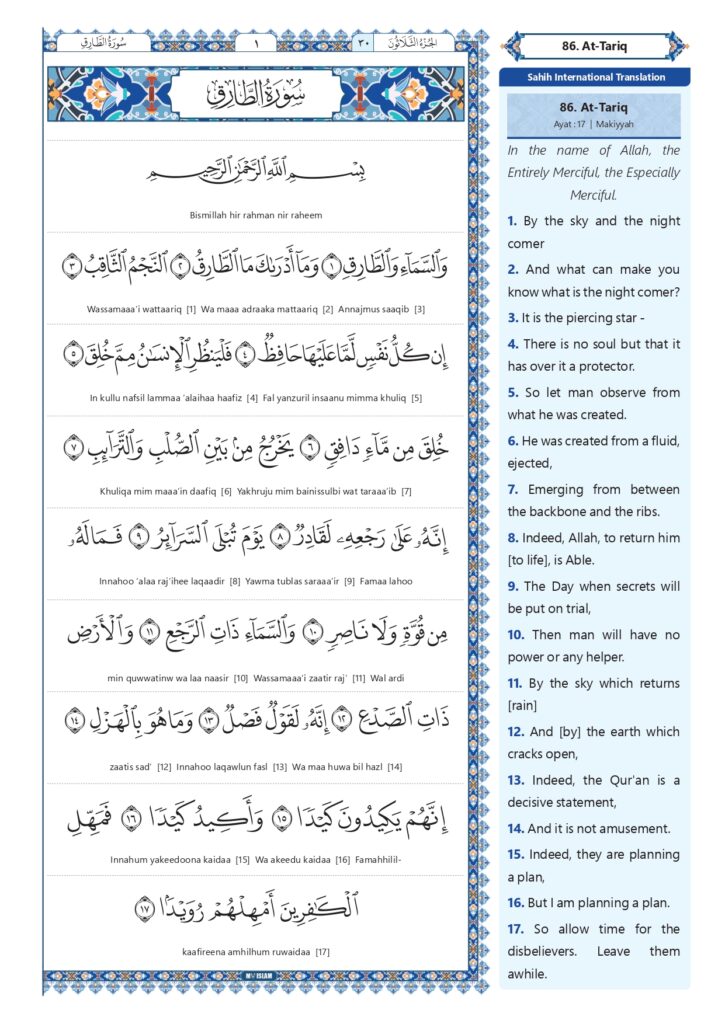 سُورَةُ الطَّارِقِ
١
٣٠
الجُزءُ الثَّلَاثُونَ
سُورَةُ الطَّارِقِ
بِسْمِ ٱللَّهِ ٱلرَّحْمَٰنِ ٱلرَّحِيمِ
Bismillah hir rahman nir raheem
وَٱلسَّمَآءِ وَٱلطَّارِقِ ١ وَمَآ أَدْرَىٰكَ مَا ٱلطَّارِقُ ٢ ٱلنَّجْمُ ٱلثَّاقِبُ ٣
Wassamaaa'i wattaariq [1] Wa maaa adraaka mattaariq [2] Annajmus saaqib [3]
إِن كُلُّ نَفْسٍ لَّمَّا عَلَيْهَا حَافِظٌ ٤ فَلْيَنظُرِ ٱلْإِنسَٰنُ مِمَّ خُلِقَ ٥
In kullu nafsil lammaa 'alaihaa haafiz [4] Fal yanzuril insaanu mimma khuliq [5]
خُلِقَ مِن مَّآءٍ دَافِقٍ ٦ يَخْرُجُ مِنۢ بَيْنِ ٱلصُّلْبِ وَٱلتَّرَآئِبِ ٧
Khuliqa mim maaa'in daafiq [6] Yakhruju mim bainissulbi wat taraaa'ib [7]
إِنَّهُۥ عَلَىٰ رَجْعِهِۦ لَقَادِرٌ ٨ يَوْمَ تُبْلَى ٱلسَّرَآئِرُ ٩ فَمَا لَهُۥ
Innahoo 'alaa raj'ihee laqaadir [8] Yawma tublas saraaa'ir [9] Famaa lahoo
مِن قُوَّةٍ وَلَا نَاصِرٍ ١٠ وَٱلسَّمَآءِ ذَاتِ ٱلرَّجْعِ ١١ وَٱلْأَرْضِ
min quwwatinw wa laa naasir [10] Wassamaaa'i zaatir raj' [11] Wal ardi
ذَاتِ ٱلصَّدْعِ ١٢ إِنَّهُۥ لَقَوْلٌ فَصْلٌ ١٣ وَمَا هُوَ بِٱلْهَزْلِ ١٤
zaatis sad' [12] Innahoo laqawlun fasl [13] Wa maa huwa bil hazl [14]
إِنَّهُمْ يَكِيدُونَ كَيْدًا ١٥ وَأَكِيدُ كَيْدًا ١٦ فَمَهِّلِ
Innahum yakeedoona kaidaa [15] Wa akeedu kaidaa [16] Famahhilil-
ٱلْكَٰفِرِينَ أَمْهِلْهُمْ رُوَيْدًۢا ١٧
kaafireena amhilhum ruwaidaa [17]
MY ISLAM
86. At-Tariq
Sahih International Translation
86. At-Tariq
Ayat : 17 | Makiyyah
In the name of Allah, the
Entirely Merciful, the Especially
Merciful.
1. By the sky and the night
comer
2. And what can make you
know what is the night comer?
3. It is the piercing star -
4. There is no soul but that it
has over it a protector.
5. So let man observe from
what he was created.
6. He was created from a fluid,
ejected,
7. Emerging from between
the backbone and the ribs.
8. Indeed, Allah, to return him
[to life], is Able.
9. The Day when secrets will
be put on trial,
10. Then man will have no
power or any helper.
11. By the sky which returns
[rain]
12. And [by] the earth which
cracks open,
13. Indeed, the Qur'an is a
decisive statement,
14. And it is not amusement.
15. Indeed, they are planning
a plan,
16. But I am planning a plan.
17. So allow time for the
disbelievers. Leave them
awhile.